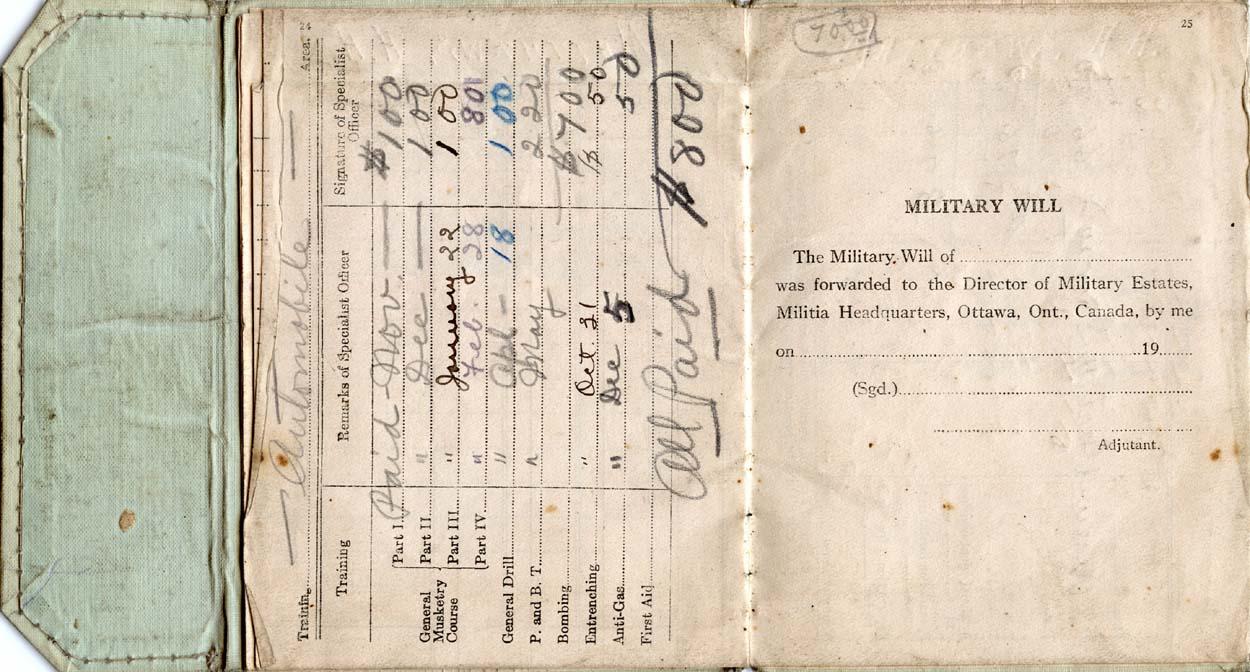 24
Training Automobile Area.
Training Remarks of Specialist Officer Signature of Specialist Officer
General Musketry Course
Part I. Paid Nov. — $100
Part II. " Dec — 100
Part III. " January 22 100
Part IV. " Feb. 28 80
General Drill " Apl – 18 100
P. and B. T. " May 220
Bombing $700
Entrenching " Oct. 31 $ 50
Anti-Gas " Dec 5 50
First Aid
All Paid $800
25
MILITARY WILL
The Military Will of
was forwarded to the Director of Military Estates,
Militia Headquarters, Ottawa, Ont., Canada, by me
on 19
(Sgd.)
Adjutant.